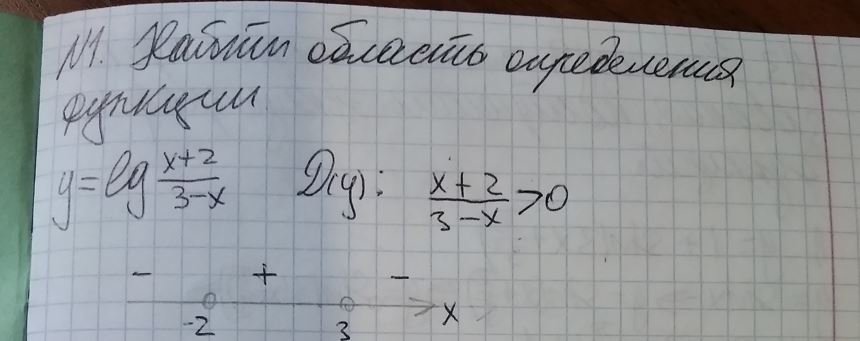 №1. Найти область определения
функции
y = lg \frac{x+2}{3-x} D(y): \frac{x+2}{3-x} > 0
- + -
-2 3 x